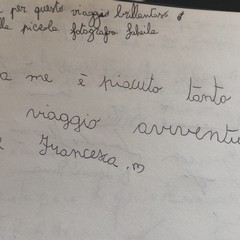 per questo viaggio brillantoso e
lla piccola fotografa Sabila
a me è piaciuto tanto
viaggio avventu
Francesca